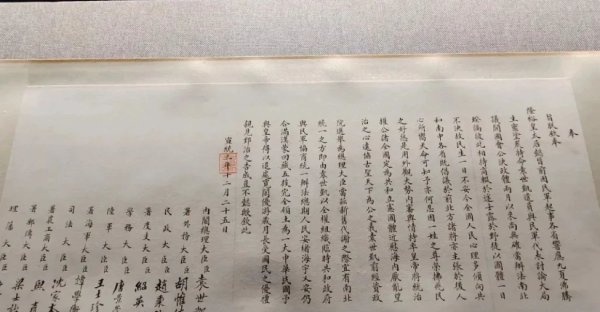 奉
旨朕欽奉
隆裕皇太后懿旨前因民軍起事各省響應九夏沸騰
生靈塗炭特命袁世凱遣員與民軍代表討論大局
議開國會公決政體兩月以來尚無確當辦法南北
暌隔彼此相持商輟於途士露於野徒以國體一日
不決故民生一日不安今全國人民心理多傾向共
和南中各省既倡議於前北方諸將亦主張於後人
心所嚮天命可知予亦何忍因一姓之尊榮拂兆民
之好惡是用外觀大勢內審輿情特率皇帝將統治
權公諸全國定為共和立憲國體近慰海內厭亂望
治之心遠協古聖天下為公之義袁世凱前經資政
院選舉為總理大臣當茲新舊代謝之際宜有南北
統一之方即由袁世凱以全權組織臨時共和政府
與民軍協商統一辦法總期人民安堵海宇乂安仍
合滿漢蒙回藏五族完全領土為一大中華民國予
與皇帝得以退處寬閒優游歲月長受國民之優禮
親見郅治之告成豈不懿歟欽此
宣統三年十二月二十五日
內閣總理大臣袁世
署外務大臣胡惟
民政大臣趙秉
署度支大臣紹英
學務大臣唐景
陸軍大臣王士珍
署海軍大臣譚學
司法大臣沈家
署農工商大臣熙彥
署郵傳大臣梁士
理藩大臣